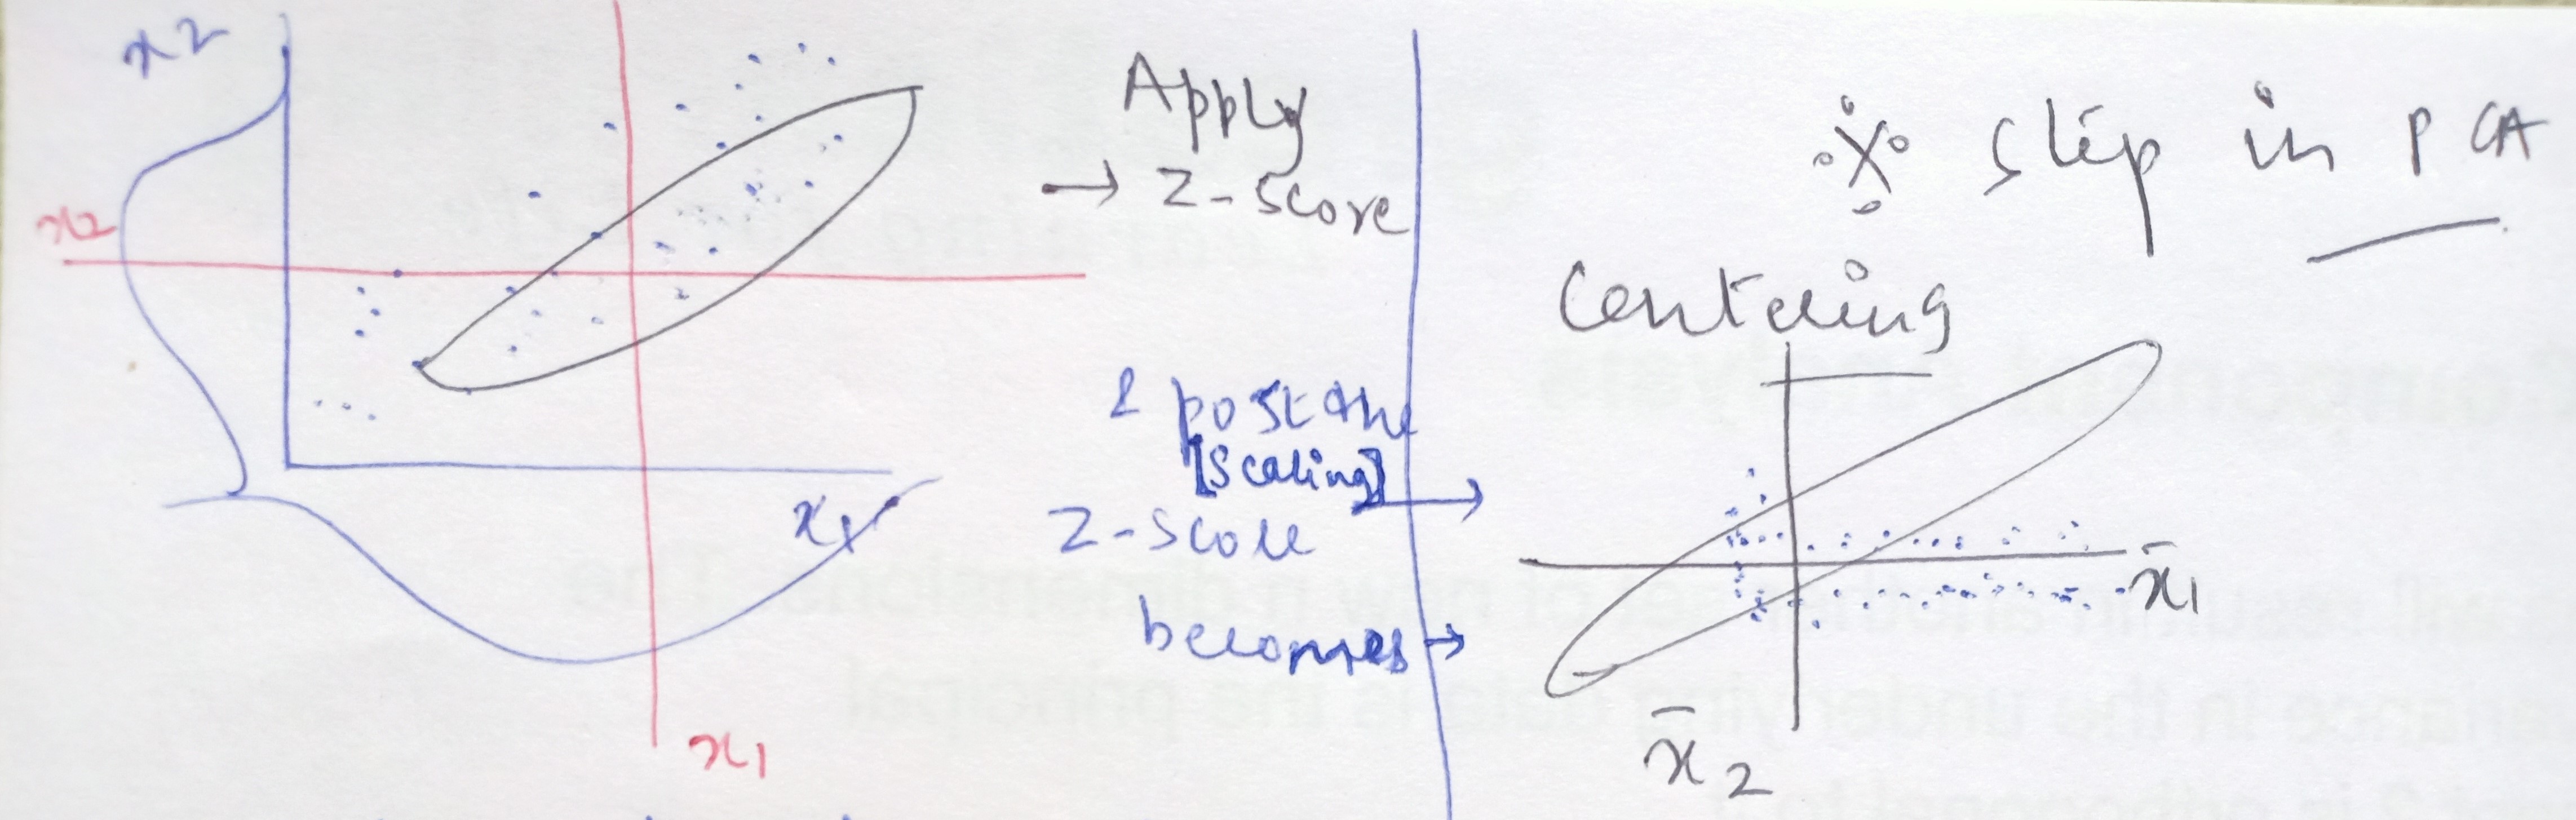 x2
x2
x1
x1
Apply
→ Z-Score
& post the
[Scaling] →
Z-score
becomes →
※ Step in PCA
Centering
x̄1
x̄2